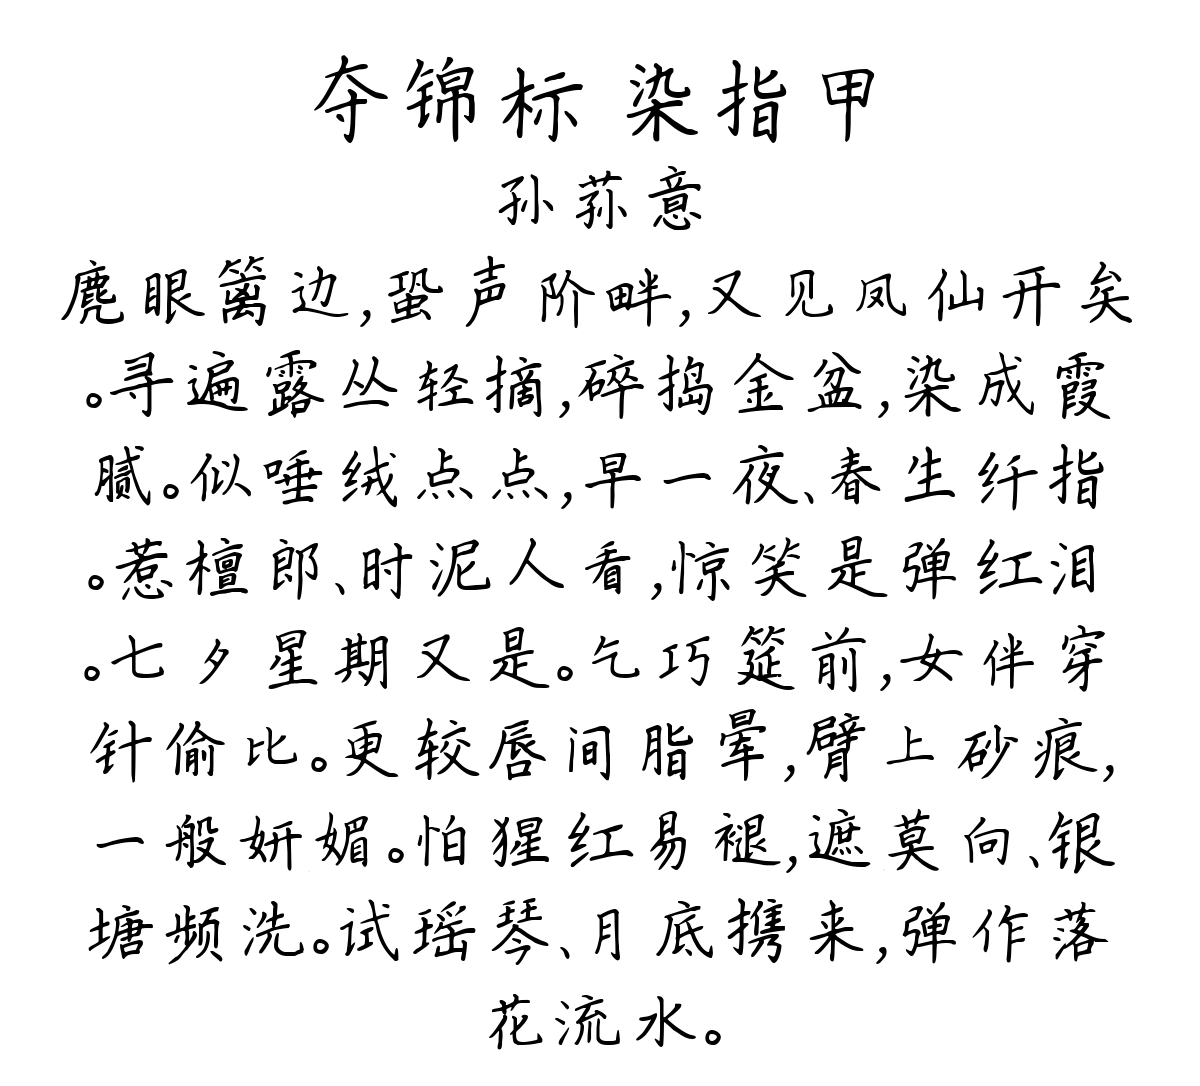 夺锦标 染指甲
孙荪意
麂眼篱边,蛩声阶畔,又见凤仙开矣
。寻遍露丛轻摘,碎捣金盆,染成霞
腻。似唾绒点点,早一夜、春生纤指
。惹檀郎、时泥人看,惊笑是弹红泪
。七夕星期又是。乞巧筵前,女伴穿
针偷比。更较唇间脂晕,臂上砂痕,
一般妍媚。怕猩红易褪,遮莫向、银
塘频洗。试瑶琴、月底携来,弹作落
花流水。